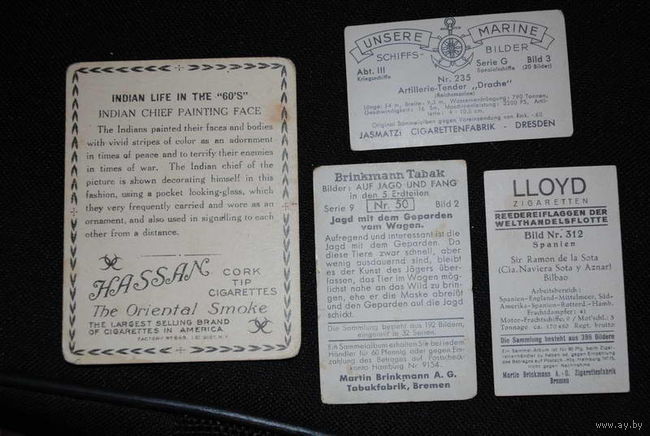 INDIAN LIFE IN THE "60'S"
INDIAN CHIEF PAINTING FACE
The Indians painted their faces and bodies
with vivid stripes of color as an adornment
in times of peace and to terrify their enemies
in times of war. The Indian chief of the
picture is shown decorating himself in this
fashion, using a pocket looking-glass, which
they very frequently carried and wore as an
ornament, and also used in signalling to each
other from a distance.
HASSAN
CORK
TIP
CIGARETTES
The Oriental Smoke
THE LARGEST SELLING BRAND
OF CIGARETTES IN AMERICA
UNSERE MARINE
SCHIFFS- BILDER
Abt. III
Kriegsschiffe
Serie G
Spezialschiffe
Bild 3
(20 Bilder)
Nr. 235
Artillerie-Tender „Drache"
(Reichsmarine)
JASMATZI CIGARETTENFABRIK - DRESDEN
Brinkmann Tabak
Bilder: AUF JAGD UND FANG
in den 5 Erdteilen
Serie 9 Nr. 50 Bild 2
Jagd mit dem Geparden
vom Wagen.
Aufregend und interessant ist die
Jagd mit dem Geparden. Da
diese Tiere zwar schnell, aber
wenig ausdauernd sind, bleibt
es der Kunst des Jägers über-
lassen, das Tier im Wagen mög-
lichst nahe an das Wild zu brin-
gen, ehe er die Maske abreibt
und den Geparden auf die Jagd
schickt.
Die Sammlung besteht aus 192 Bildern,
eingeteilt in 32 Serien.
Ein Sammelalbum erhalten Sie bei Ihrem
Händler für 60 Pfennig oder gegen Ein-
zahlung des Betrages auf Postscheck-
konto Hamburg Nr. 9154.
Martin Brinkmann A. G.
Tabakfabrik, Bremen
LLOYD
ZIGARETTEN
REEDEREIFLAGGEN DER
WELTHANDELSFLOTTE
Bild Nr. 312
Spanien
Sir Ramon de la Sota
(Cia. Naviera Sota y Aznar)
Bilbao
Arbeitsbereich:
Spanien-England-Mittelmeer, Süd-
Amerika-Spanien-Rotterd.-Hamb.
Die Sammlung besteht aus 396 Bildern
Martin Brinkmann A.-G. Zigarettenfabrik
Bremen
www.ay.by